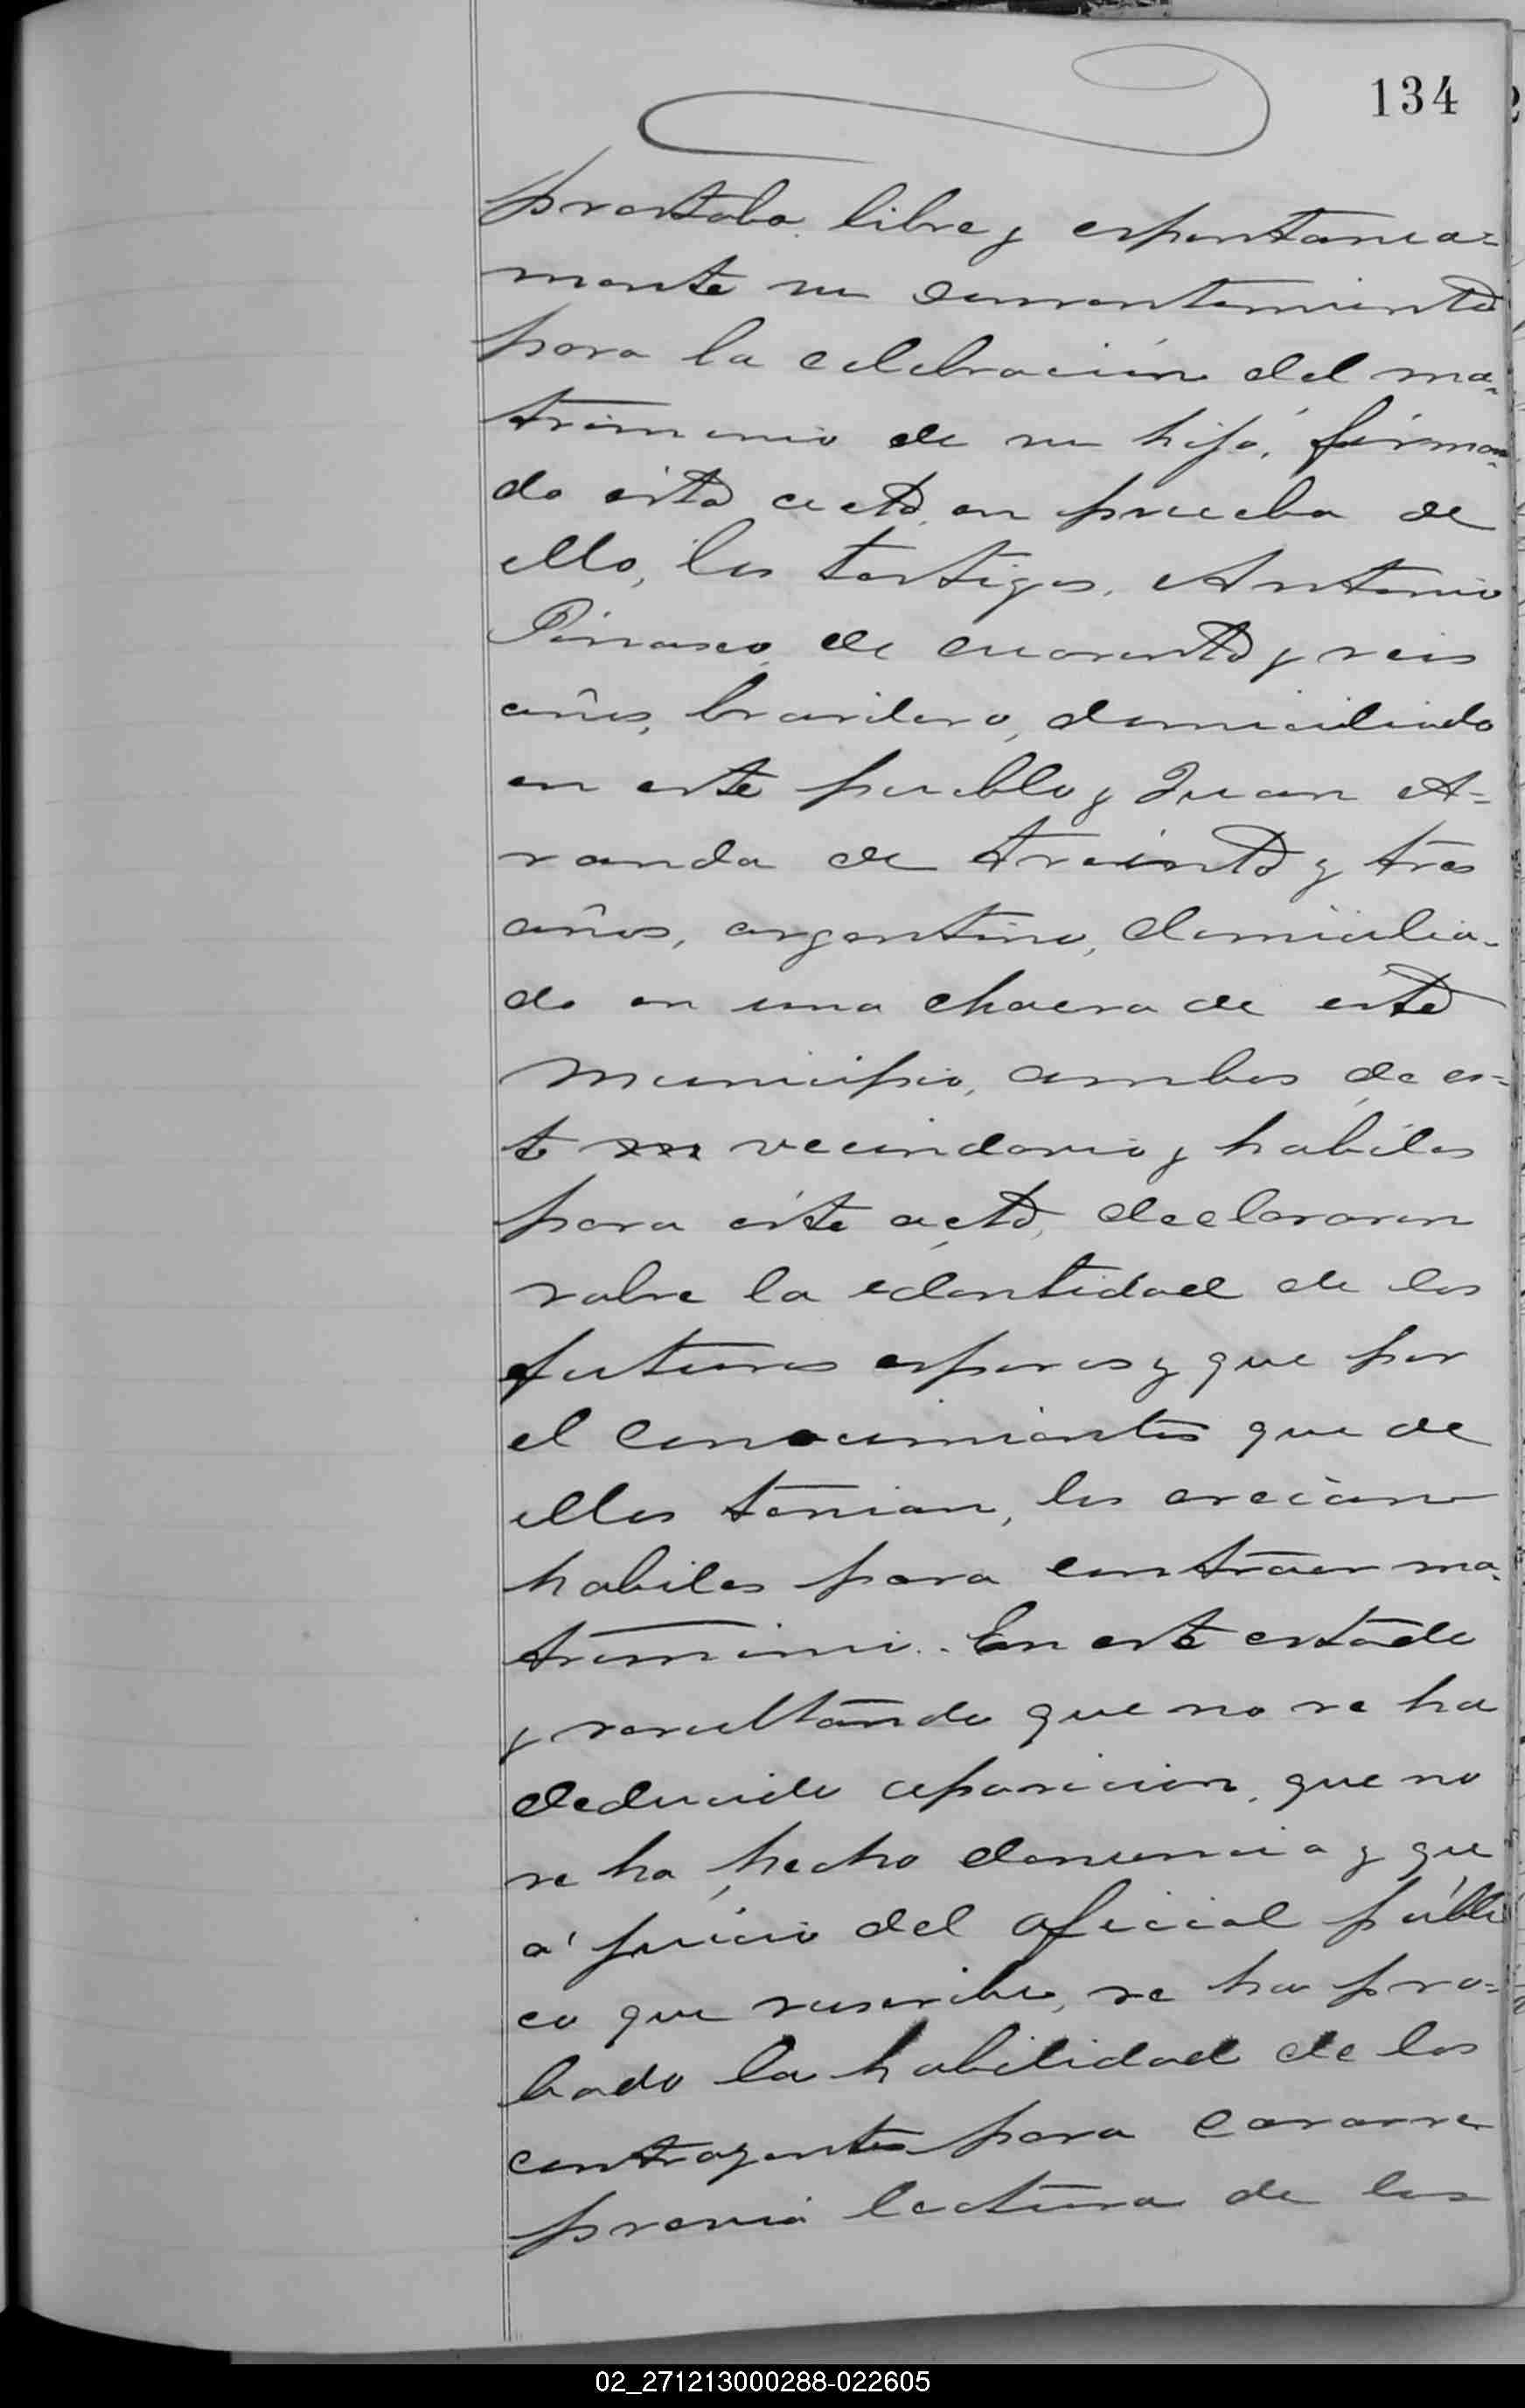 134
prestaba libre y espontanea=
mente su consentimiento
para la celebración del ma-
trimonio de su hijo, firman-
do ésta acta en prueba de
ello, los testigos, Antonio
de cuarenta y seis
años, brasilero, domiciliado
en este pueblo y Juan A=
randa de treinta y tres
años, argentino, domicilia-
do en una chacra de este
Municipio, ambos de es=
te vecindario y habiles
para éste acto, declararon
sobre la identidad de los
futuros esposos y que por
el conocimiento que de
ellos tenian, los creian
habiles para contraer ma-
trimonio.. En este estado
y resultando que no se ha
deducido oposicion, que no
se ha hecho denuncia y que
a' juicio del oficial públi
co que suscribe, se ha pro=
bado la habilidad de los
contrayentes para casarse
previa lectura de los
02_271213000288-022605